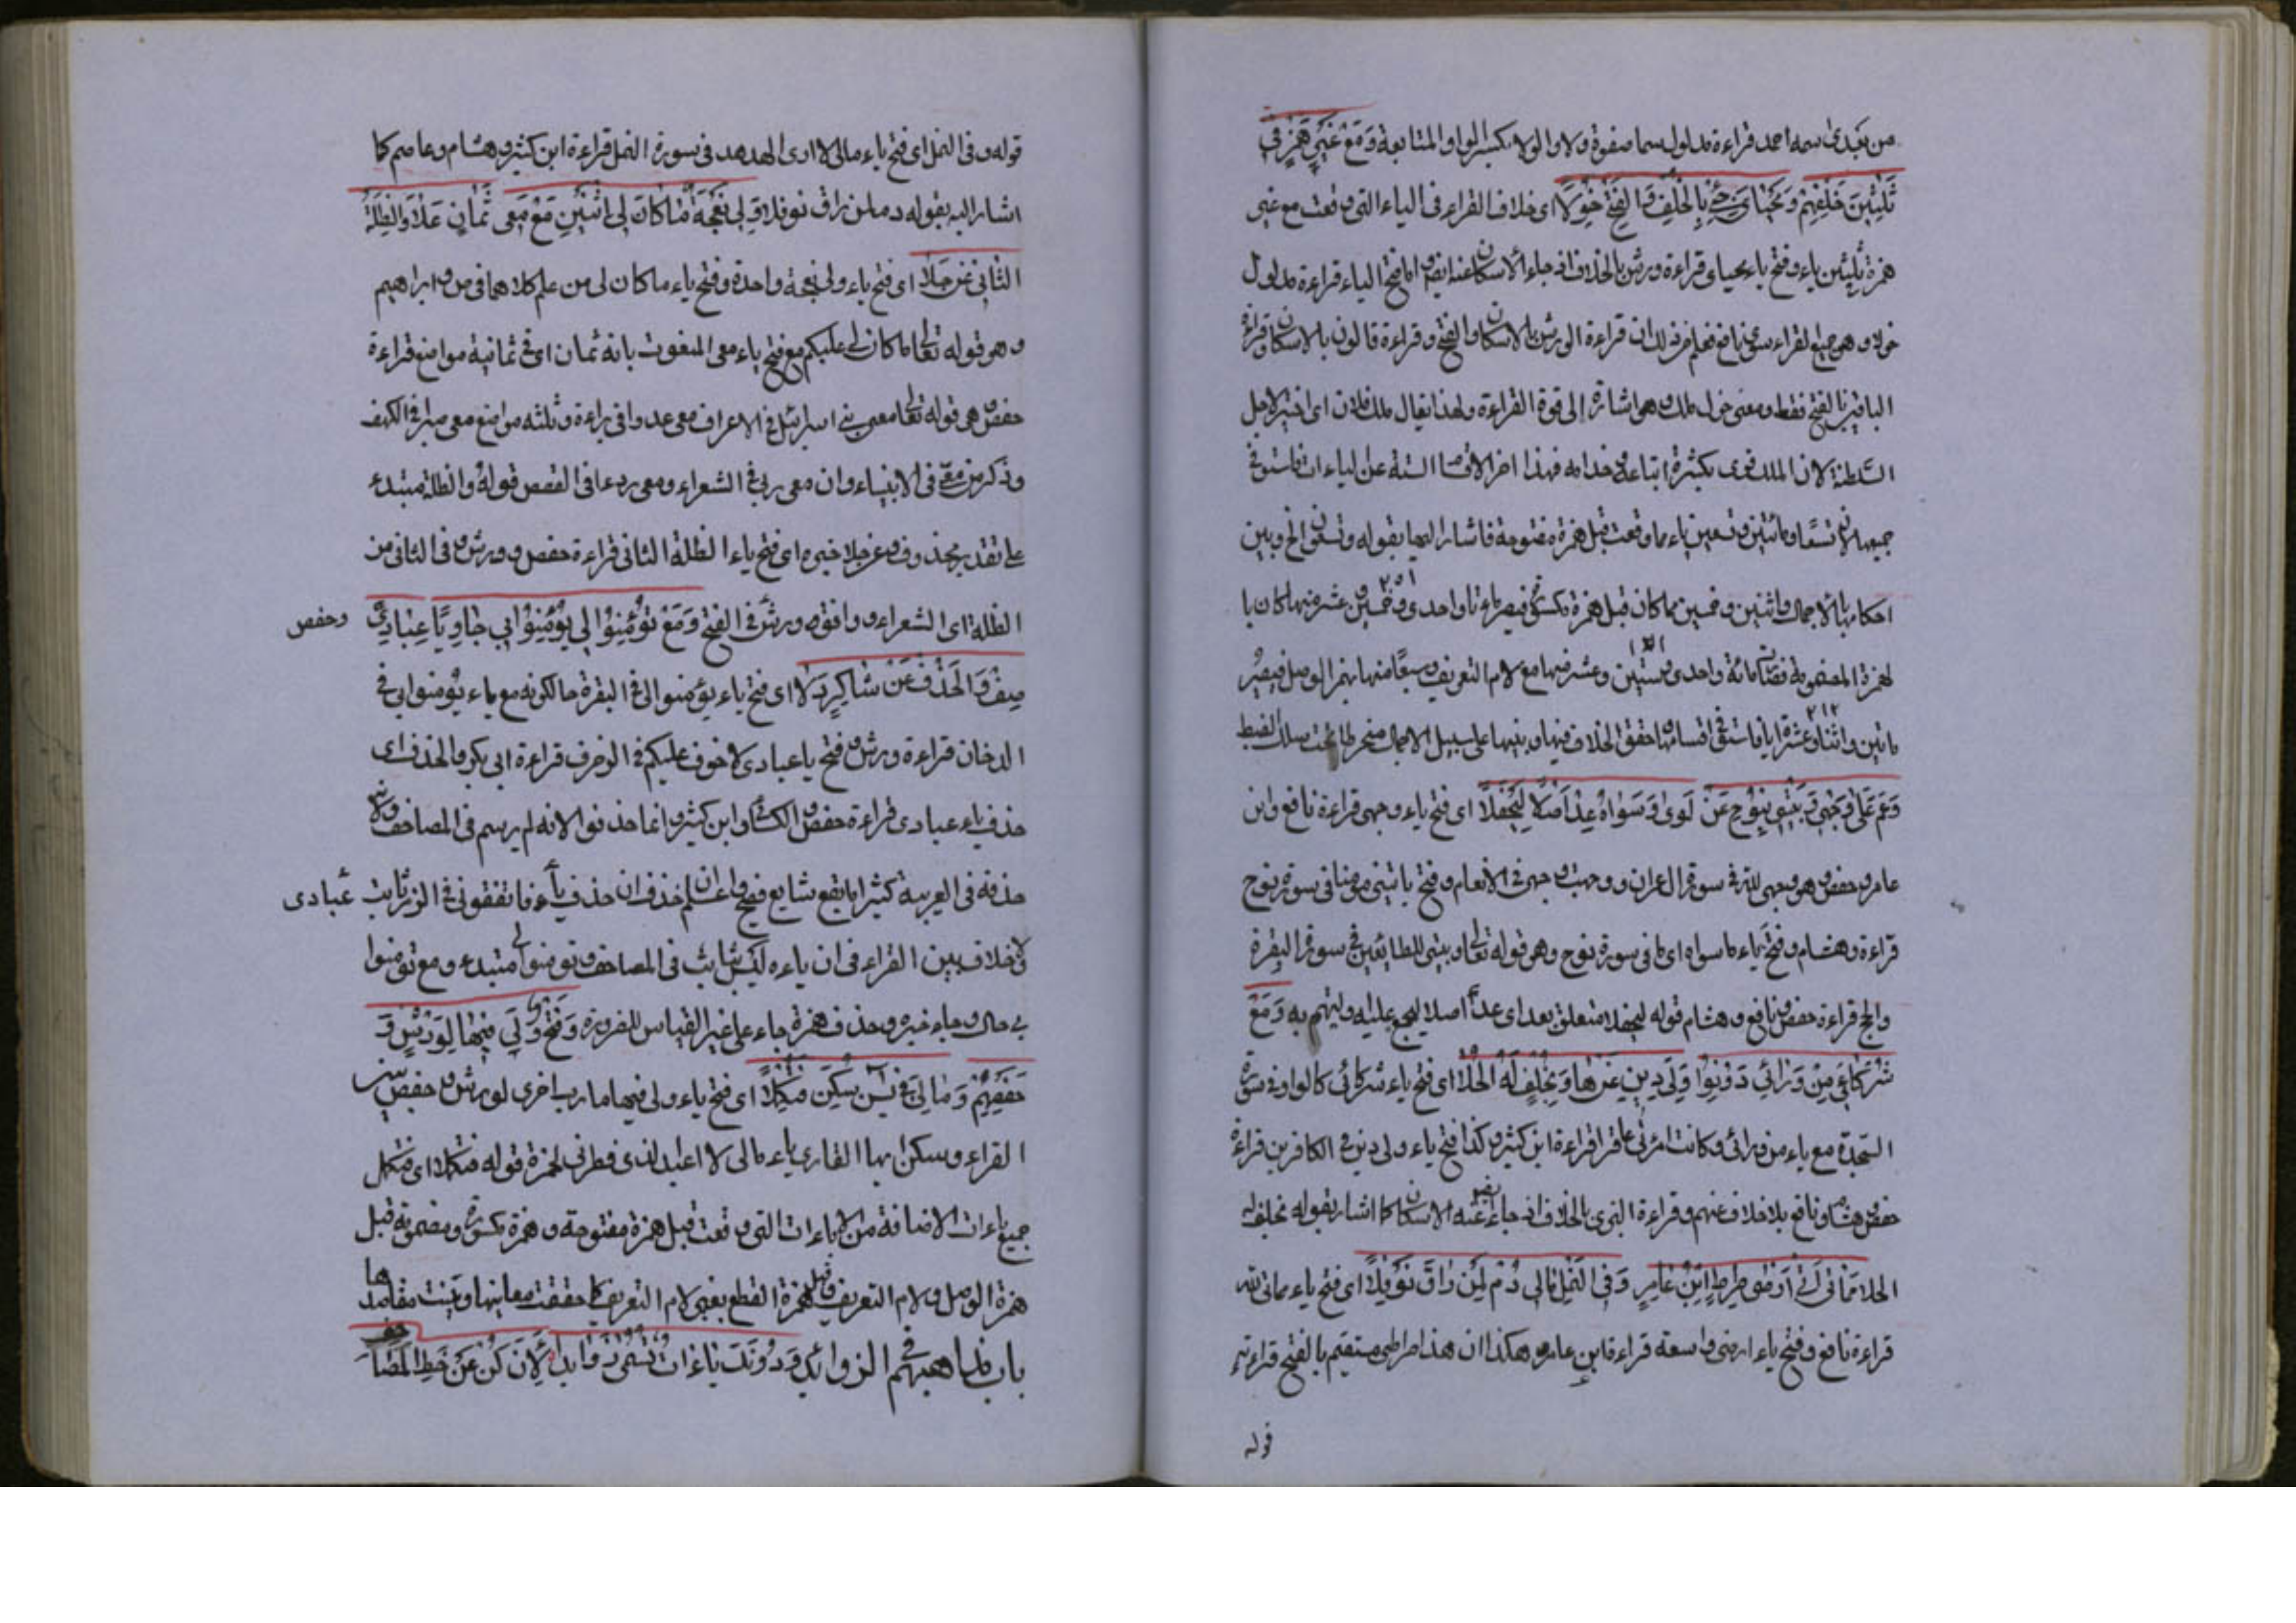 من بعدى اسمه احمد قراءة مدلول سما صفوة ولاء والولاء بكسر الواو المتابعة وَمَعْ غَيْرِ هَمْزٍ فِي
ثَلَاثِينَ خُلْفُهُمْ وَمَحْيَايَ جِئْ بِالْخُلْفِ وَالْفَتْحُ خُوِّلَا اى خلاف القراء فى الياء التى وقعت مع غير
همزة ثلثين ياء وفتح ياء محياى قراءة ورش بالخلاف اذ جاء الاسكان عنه ايضا واما فتح الياء قراءة مدلول
خولا وهو جميع القراء سوى نافع فعلم من ذلك ان قراءة الورش بالاسكان والفتح وقراءة قالون بالاسكان وقراءة
الباقين بالفتح فقط ومعنى خول ملك وهو اشارة الى قوة القراءة ولهذا يقال ملك فلان اى اختير لاجل
السلطنة لان الملك قوى بكثرة اتباعه وخدامه فهذا اخر الاقسام الستة على الياءات فاستوفى
جميعها لان تسعا ومائتين وتسعين ياء مما وقعت قبل همزة مفتوحة فاشار اليها بقوله وتسعون الخ وبين
احكامها بالاجمال واثنين وخمسين مما كان قبل همزة مكسورة فيصير مائة واحدى وخمسين ١٥٢ وعشر منها كان با
لهمزة المضمومة فصارت مائة واحدى وستين ١٦١ وعشر منها مع لام التعريف وسبعا منها بهمز الوصل فيصير
مايتين واثنتا عشرة ٢١٢ ياء فاستوفى اقسامها وحقق الخلاف فيها وبينها على سبيل الاجمال منخرطا تحت سلك الضبط
وَعَمَّ عُلًى وَجْهِي وَبَيْتِي بِنُوحٍ عَنْ لِوًى وَسِوَاهُ عُدَّ أَصْلًا لِيُحْفَلَا اى فتح ياء وجهى قراءة نافع وابن
عامر وحفص وهو وجهى لله فى سورة ال عمران ووجهت وجهى فى الانعام وفتح يا بيتى مؤمنا فى سورة نوح
قراءة وهشام وفتح ياء ما سواه اى ما فى سورة نوح وهو قوله تعالى وبيتى للطائفين فى سورة البقرة
والحج قراءة حفص ونافع وهشام قوله ليحفلا متعلق بعد اى عدّ اصلا ليجمع عليه وليهتم به وَمَعْ
شُرَكَائِي مِنْ وَرَائِي دَوَّنُوا وَلِي دِينِ عَنْ هَادٍ بِخُلْفٍ لَهُ الْحُلَا اى فتح ياء شركائى قالوا فى سورة
السجدة مع ياء من ورائى وكانت امرأتى عاقرا قراءة ابن كثير وكذا فتح ياء ولى دين فى الكافرين قراءة
حفص وهشام ونافع بلا خلاف عنهم وقراءة البزى بالخلاف اذ جاء عنه ايضا الاسكان كما اشار بقوله بخلف له
الحلا مَمَاتِي أَتَى أَرْضِي صِرَاطِي ابْنُ عَامِرٍ وَفِي النَّمْلِ مَالِي دُمْ لِمَنْ رَاقَ نَوْفَلَا اى فتح ياء مماتى لله
قراءة نافع وفتح ياء ارضى واسعة قراءة ابن عامر وهكذا ان هذا صراطى مستقيم بالفتح قراءته
قوله
قوله وفى النمل اى فتح ياء مالى لا ارى الهدهد فى سورة النمل قراءة ابن كثير وهشام وعاصم كما
اشار اليه بقوله دم لمن راق نوفلا وَلِي نَعْجَةٌ مَا كَانَ لِي اثْنَيْنِ مَعْ مَعِي ثَمَانٍ عُلًا وَالظُّلَّةُ
الثَّانِي عَنْ جَلَا اى فتح ياء ولى نعجة واحدة وفتح ياء ما كان لى من علم كلاهما فى ص وابراهيم
وهو قوله تعالى ما كان لى عليكم مع فتح ياء معى المنعوت بانه ثمان اى فى ثمانية مواضع قراءة
حفص هى قوله تعالى معى بنى اسرائيل فى الاعراف معى عدوا فى براءة وثلثه مواضع معى صبرا فى الكهف
وذكر من معى فى الانبياء وان معى ربى فى الشعراء ومعى ردءا فى القصص قوله والظلة مبتدء
على تقدير محذوف وعن جلا خبره اى فتح ياء الظلة الثانى قراءة حفص وورش وفى الثانى من
الظلة اى الشعراء ووافقه ورش فى الفتح وَمَعْ تُؤْمِنُوا لِي يُؤْمِنُوا بِي جَا وَيَا عِبَادِيَ
وحفص
صِفْ وَالْحَذْفُ عَنْ شَاكِرٍ دَلَا اى فتح ياء يؤمنوا لى فى البقرة حالكونه مع ياء يؤمنوا بى فى
الدخان قراءة ورش وفتح يا عبادى لا خوف عليكم فى الزخرف قراءة ابى بكر والحذف اى
حذف ياء عبادى قراءة حفص والكسائى وابن كثير وانما حذفوا لانه لم يرسم فى المصاحف ولان
حذفه فى العربية كثيرا ما يقع شايع فصيح واعلم ان حذف ياء فاتقون فى الزمر ثابت
عبادى
لا خلاف بين القراء فى ان ياءه ليس ثابت فى المصاحف وتومنوا لى مبتدء ومع تؤمنوا
بى حال وجاء خبره وحذف همزة جاء على غير القياس للضرورة وَفَتْحُ وَلِي فِيهَا لِوَرْشٍ وَ
حَفْصِهِمْ وَمَالِيَ فِي يس سَكِّنْ فَتَكْمُلَا اى فتح ياء ولى فيها مارب اخرى لورش وحفص من
القراء وسكن ايها القارى ياء مالى لا اعبد الذى فطرنى لحمزة قوله فتكملا اى فتكمل
جميع ياءات الاضافة من الياءات التى وقعت قبل همزة مفتوحة وهمزة مكسورة ومضمومة قبل
همزة الوصل ولام التعريف وقبل همزة القطع بغير لام التعريف كما حققت معانيها وبينت مقاصدها
باب مذاهبهم فى الزوائد وَدُونَكَ يَاءَاتٍ تُسَمَّى زَوَائِدَا لِأَنْ كُنَّ عَنْ خَطِّ الْمَصَاحِفِ